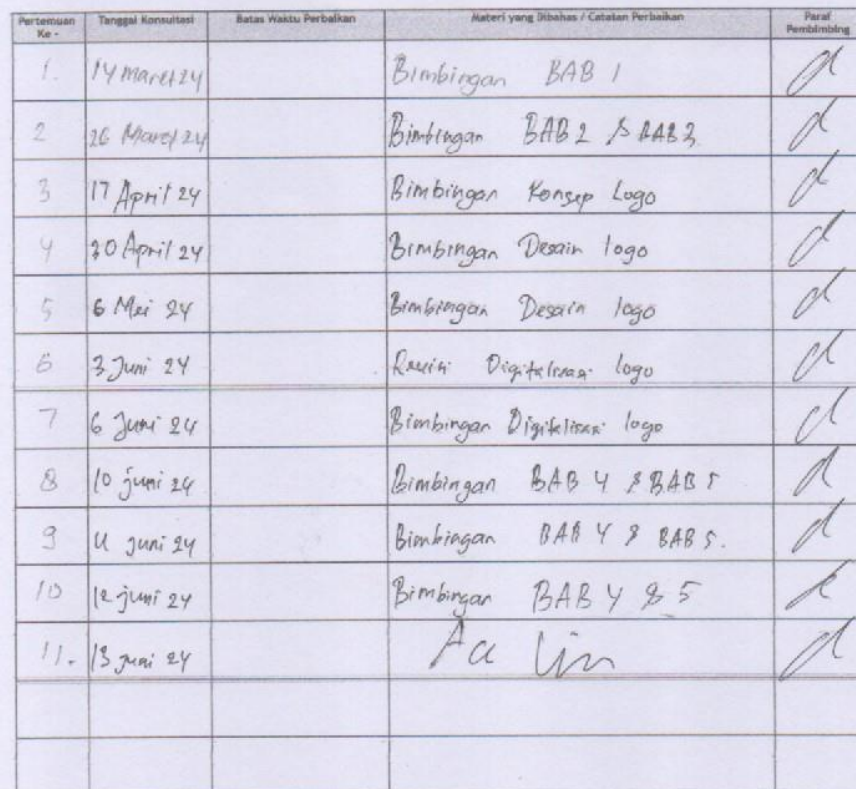 Pertemuan Ke - Tanggal Konsultasi Batas Waktu Perbaikan Materi yang Dibahas / Catatan Perbaikan Paraf Pembimbing
1. 14 Maret 24 Bimbingan BAB 1
2 26 Maret 24 Bimbingan BAB 2 & BAB 3
3 17 April 24 Bimbingan Konsep Logo
4 30 April 24 Bimbingan Desain logo
5 6 Mei 24 Bimbingan Desain logo
6 3 Juni 24 Revisi Digitalisasi logo
7 6 Juni 24 Bimbingan Digitalisasi logo
8 10 juni 24 Bimbingan BAB 4 & BAB 5
9 11 juni 24 Bimbingan BAB 4 & BAB 5.
10 12 juni 24 Bimbingan BAB 4 & 5
11. 13 juni 24